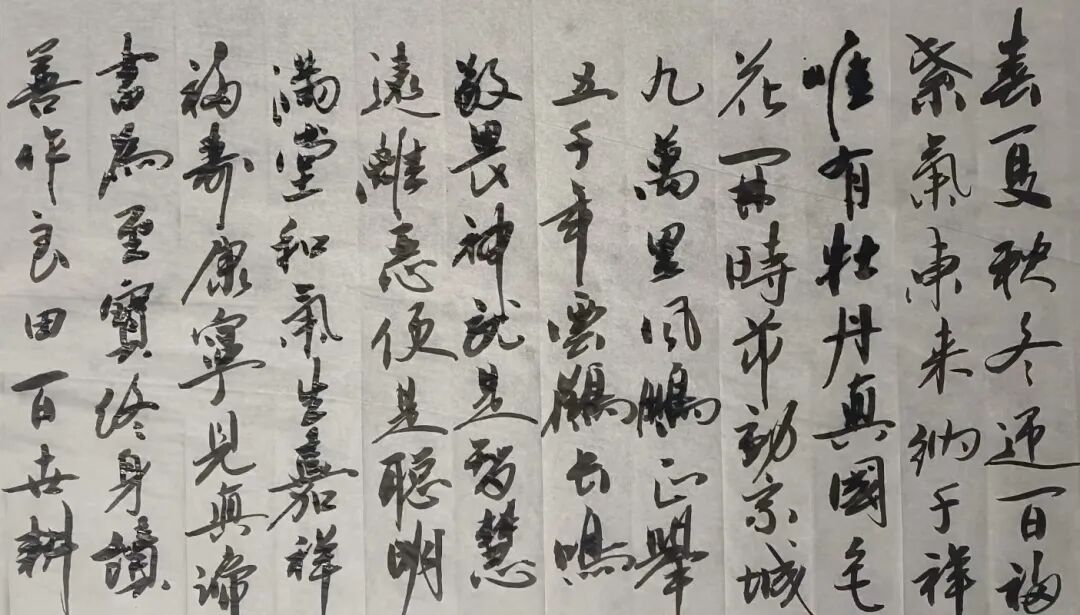 春夏秋冬迎百福
紫氣東来納千祥
唯有牡丹真國色
花開時節動京城
九萬里風鵬正舉
五千年雲鶴長鳴
敬畏神就是智慧
遠離惡便是聰明
滿堂和氣生嘉祥
福壽康寧見真諦
書為至寶終身讀
善作良田百世耕